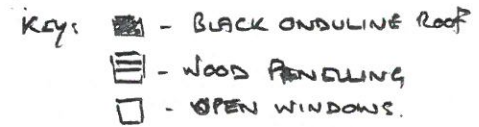 Key: - BLACK ONDULINE Roof
- WOOD PANELLING
- OPEN WINDOWS.